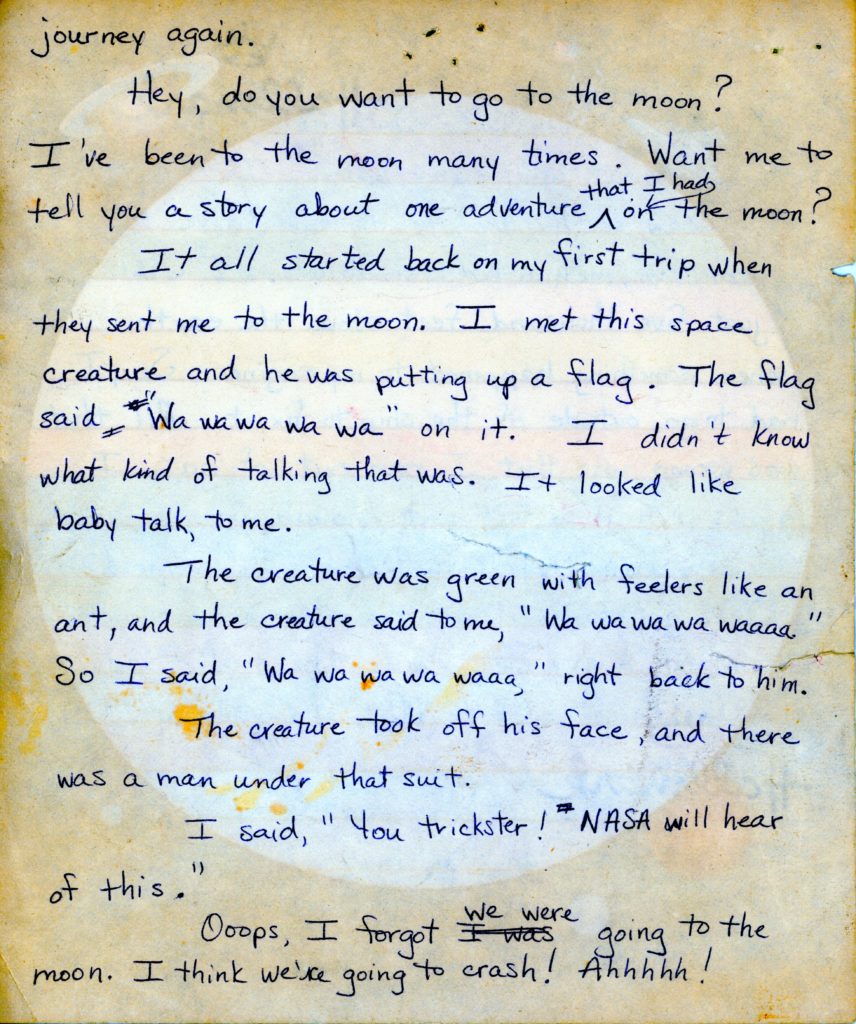 journey again.
Hey, do you want to go to the moon?
I've been to the moon many times. Want me to
tell you a story about one adventure that I had on the moon?
It all started back on my first trip when
they sent me to the moon. I met this space
creature and he was putting up a flag. The flag
said, "Wa wa wa wa wa" on it. I didn't know
what kind of talking that was. It looked like
baby talk, to me.
The creature was green with feelers like an
ant, and the creature said to me, "Wa wa wa wa waaaa."
So I said, "Wa wa wa wa waaa," right back to him.
The creature took off his face, and there
was a man under that suit.
I said, "You trickster! NASA will hear
of this."
Ooops, I forgot I was we were going to the
moon. I think we're going to crash! Ahhhhh!